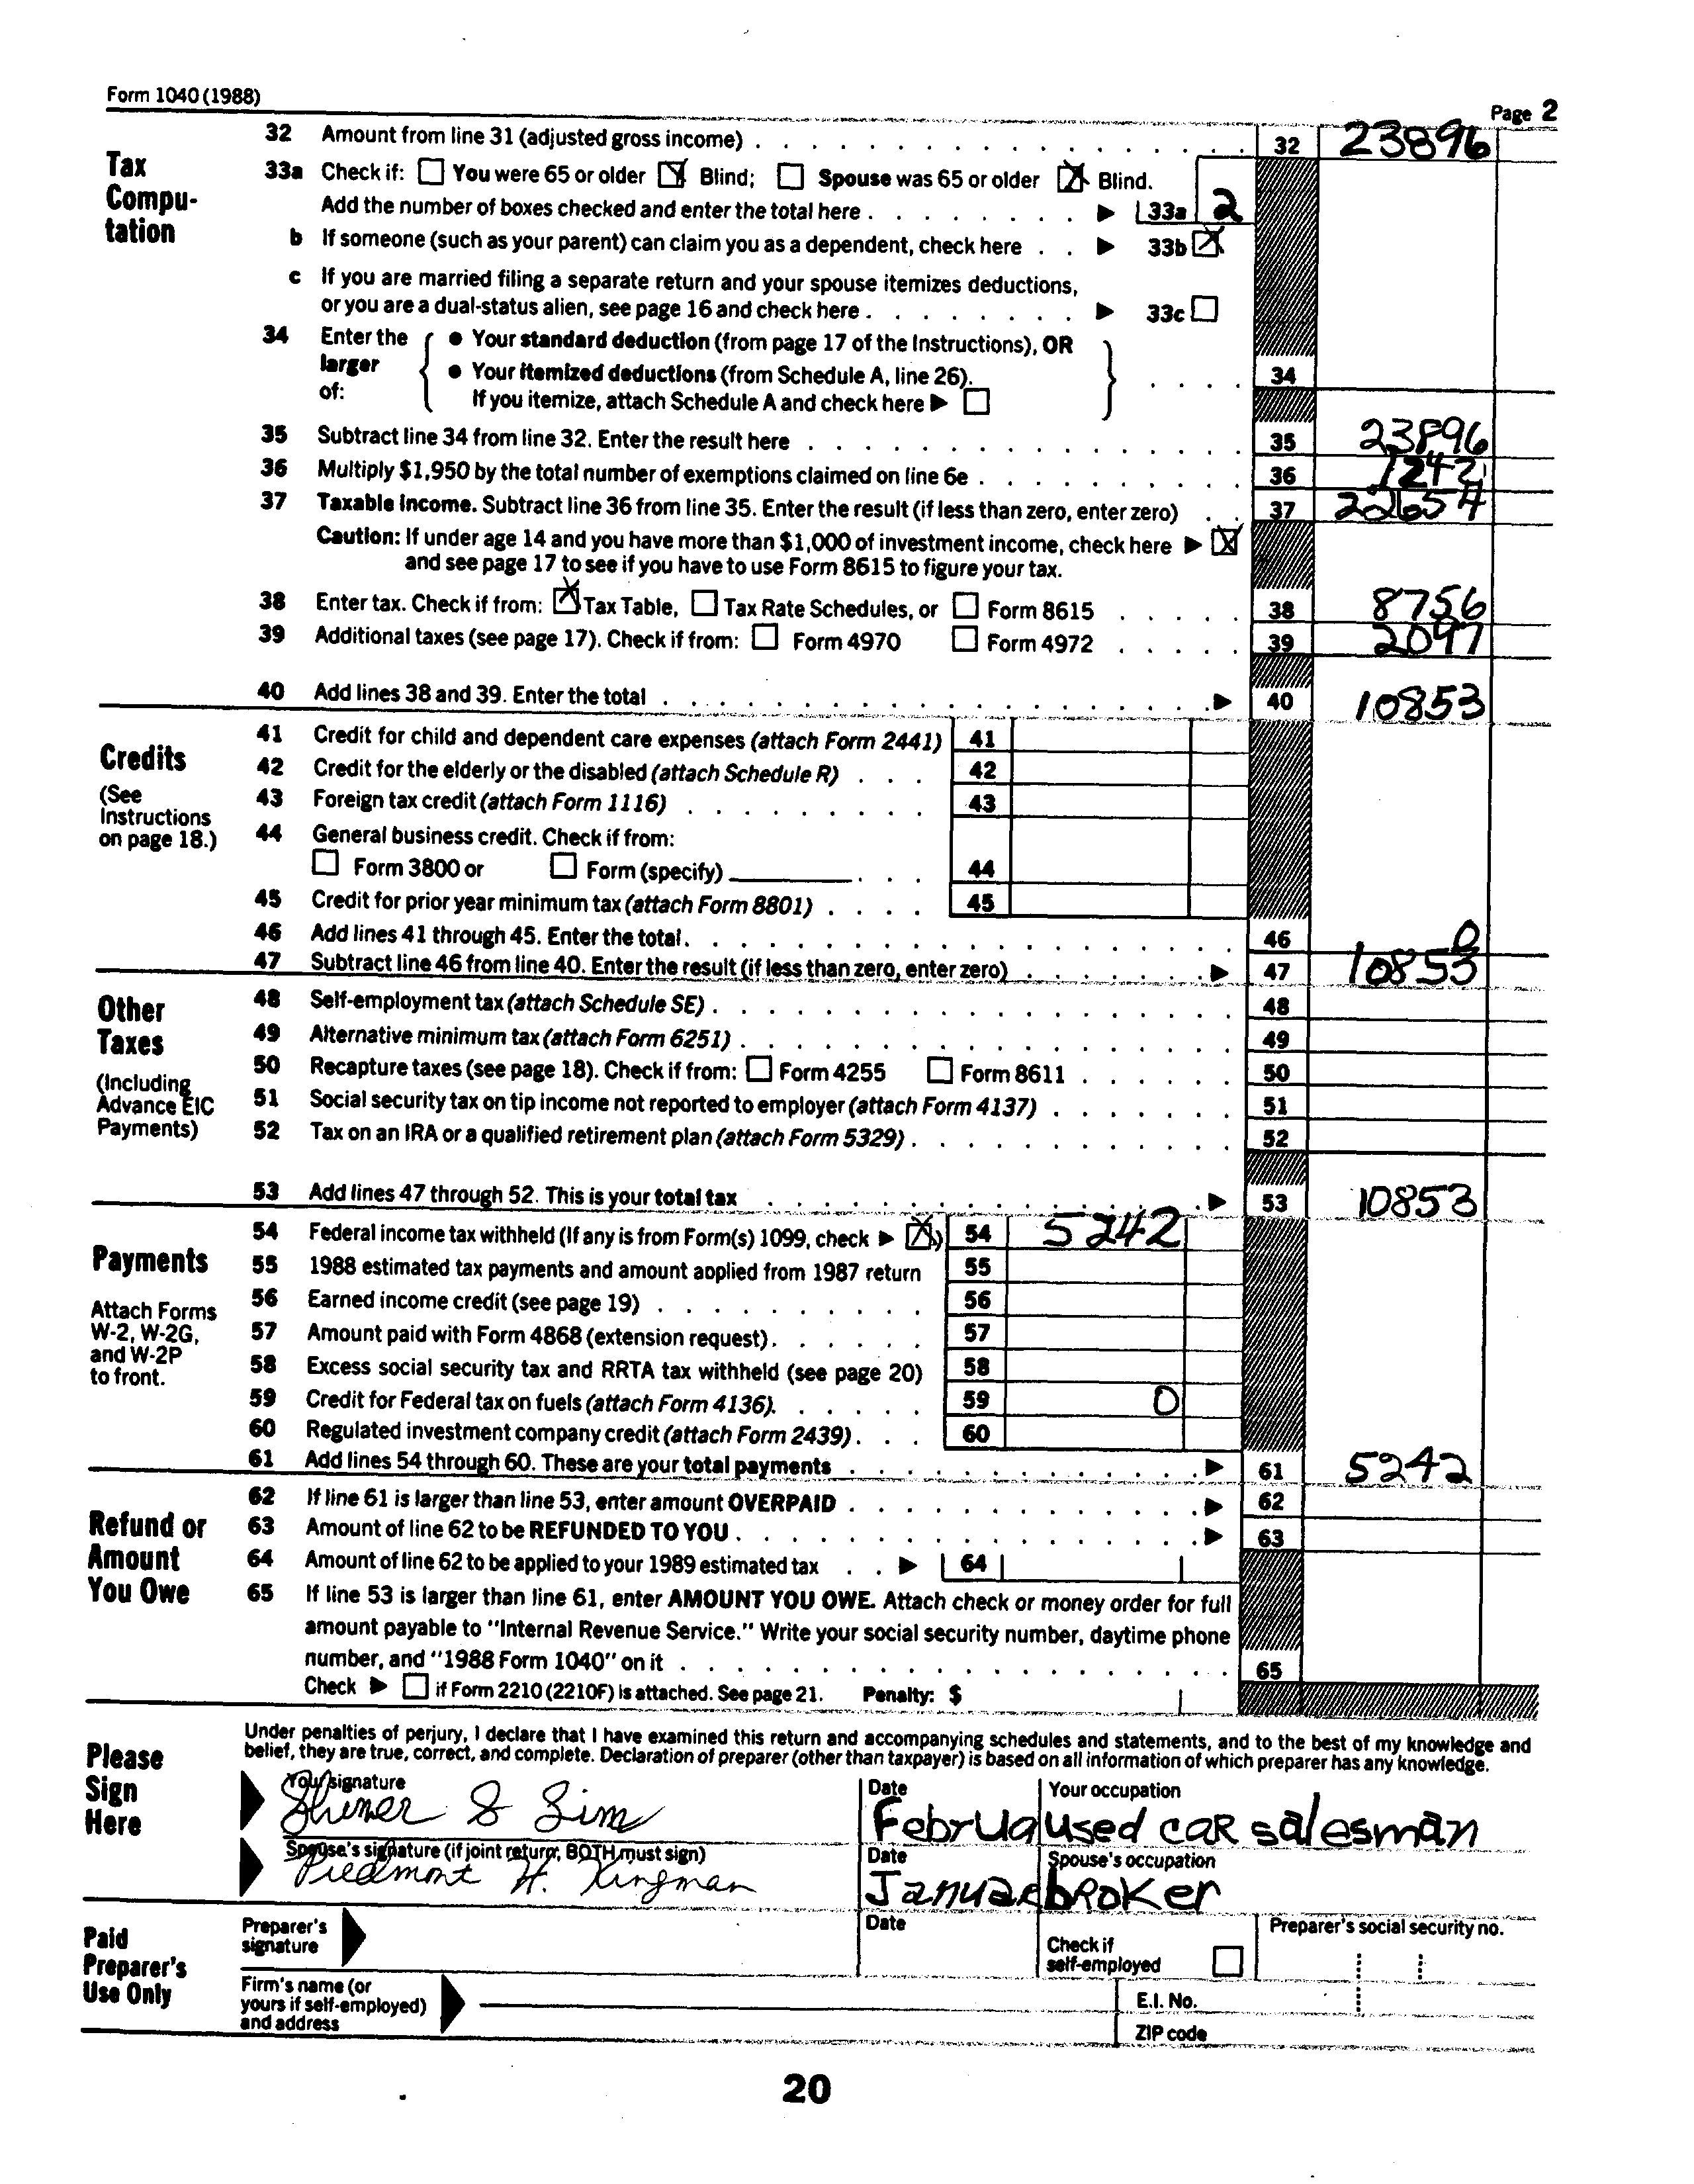 Form 1040 (1988)
Page 2
Tax Compu-tation
32 Amount from line 31 (adjusted gross income) . . . 32 23896
33a Check if: You were 65 or older Blind; Spouse was 65 or older Blind.
Add the number of boxes checked and enter the total here . . . 33a 2
b If someone (such as your parent) can claim you as a dependent, check here . . 33b
c If you are married filing a separate return and your spouse itemizes deductions,
or you are a dual-status alien, see page 16 and check here . . . 33c
34 Enter the larger of:
● Your standard deduction (from page 17 of the Instructions), OR
● Your itemized deductions (from Schedule A, line 26).
If you itemize, attach Schedule A and check here
34
35 Subtract line 34 from line 32. Enter the result here . . . 35 23896
36 Multiply $1,950 by the total number of exemptions claimed on line 6e . . . 36 1242
37 Taxable income. Subtract line 36 from line 35. Enter the result (if less than zero, enter zero) . . 37 22654
Caution: If under age 14 and you have more than $1,000 of investment income, check here
and see page 17 to see if you have to use Form 8615 to figure your tax.
38 Enter tax. Check if from: Tax Table, Tax Rate Schedules, or Form 8615 . . . 38 8756
39 Additional taxes (see page 17). Check if from: Form 4970 Form 4972 . . . 39 2097
40 Add lines 38 and 39. Enter the total . . . 40 10853
Credits
(See Instructions on page 18.)
41 Credit for child and dependent care expenses (attach Form 2441) 41
42 Credit for the elderly or the disabled (attach Schedule R) . . . 42
43 Foreign tax credit (attach Form 1116) . . . 43
44 General business credit. Check if from:
Form 3800 or Form (specify) . . . 44
45 Credit for prior year minimum tax (attach Form 8801) . . . 45
46 Add lines 41 through 45. Enter the total. . . . 46 0
47 Subtract line 46 from line 40. Enter the result (if less than zero, enter zero) . . . 47 10853
Other Taxes
(Including Advance EIC Payments)
48 Self-employment tax (attach Schedule SE) . . . 48
49 Alternative minimum tax (attach Form 6251) . . . 49
50 Recapture taxes (see page 18). Check if from: Form 4255 Form 8611 . . . 50
51 Social security tax on tip income not reported to employer (attach Form 4137) . . . 51
52 Tax on an IRA or a qualified retirement plan (attach Form 5329) . . . 52
53 Add lines 47 through 52. This is your total tax . . . 53 10853
Payments
Attach Forms W-2, W-2G, and W-2P to front.
54 Federal income tax withheld (If any is from Form(s) 1099, check ) 54 5242
55 1988 estimated tax payments and amount applied from 1987 return 55
56 Earned income credit (see page 19) . . . 56
57 Amount paid with Form 4868 (extension request) . . . 57
58 Excess social security tax and RRTA tax withheld (see page 20) 58
59 Credit for Federal tax on fuels (attach Form 4136). . . . 59 0
60 Regulated investment company credit (attach Form 2439) . . . 60
61 Add lines 54 through 60. These are your total payments . . . 61 5242
Refund or Amount You Owe
62 If line 61 is larger than line 53, enter amount OVERPAID . . . 62
63 Amount of line 62 to be REFUNDED TO YOU . . . 63
64 Amount of line 62 to be applied to your 1989 estimated tax . . 64
65 If line 53 is larger than line 61, enter AMOUNT YOU OWE. Attach check or money order for full
amount payable to "Internal Revenue Service." Write your social security number, daytime phone
number, and "1988 Form 1040" on it . . . 65
Check if Form 2210 (2210F) is attached. See page 21. Penalty: $
Please Sign Here
Under penalties of perjury, I declare that I have examined this return and accompanying schedules and statements, and to the best of my knowledge and
belief, they are true, correct, and complete. Declaration of preparer (other than taxpayer) is based on all information of which preparer has any knowledge.
Your signature Date Your occupation
Shumer S Sim Februa used caR salesman
Spouse's signature (if joint return, BOTH must sign) Date Spouse's occupation
Piedmont H. Kingman Januar bRoKer
Paid Preparer's Use Only
Preparer's signature Date Check if self-employed Preparer's social security no.
Firm's name (or yours if self-employed) and address E.I. No.
ZIP code
20